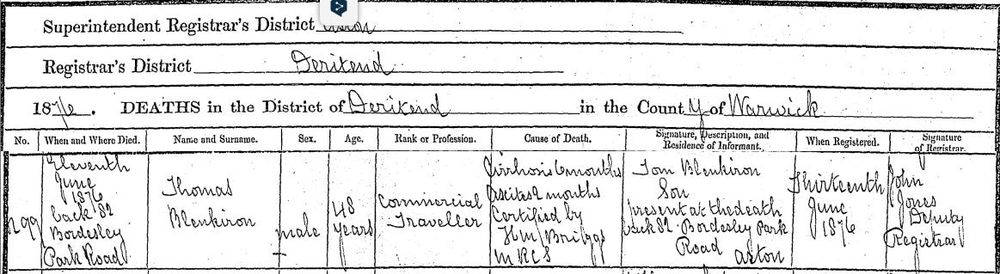 Superintendent Registrar's District Aston
Registrar's District Deritend
1876. DEATHS in the District of Deritend in the County of Warwick
No. When and Where Died. Name and Surname. Sex. Age. Rank or Profession. Cause of Death. Signature, Description, and Residence of Informant. When Registered. Signature of Registrar.
299
Eleventh
June
1876
back 82
Bordesley
Park Road
Thomas
Blenkiron
male
48
years
Commercial
Traveller
Cirrhosis 6 months
Ascites 2 months
Certified by
Hm Briggs
MRCS
Tom Blenkiron
Son
present at the death
back 82 Bordesley Park
Road
Aston
Thirteenth
June
1876
John
Jones
Deputy
Registrar